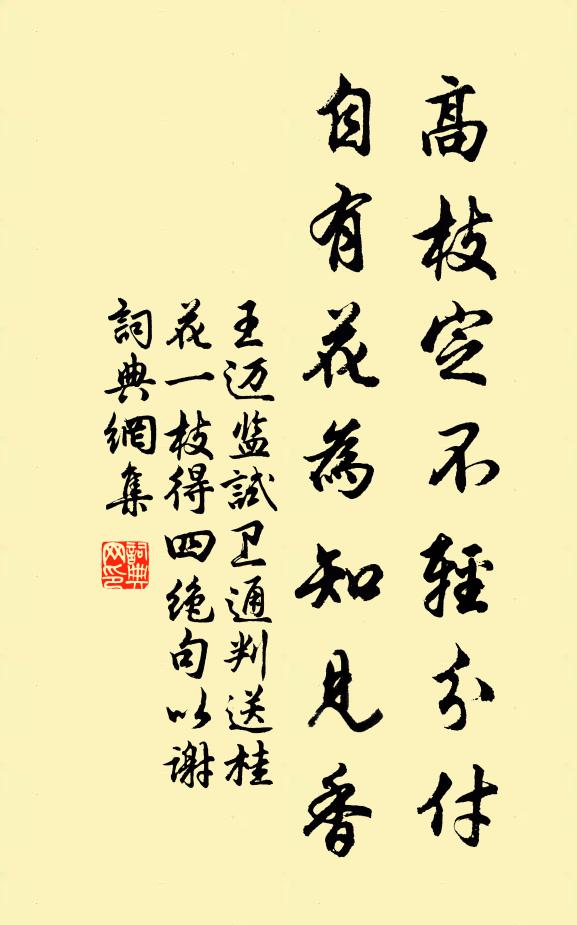 高枝定不輕分付
自有花為知見香
王迈监試卫通判送桂
花一枝得四绝句以谢
詞典網集
詞典网印